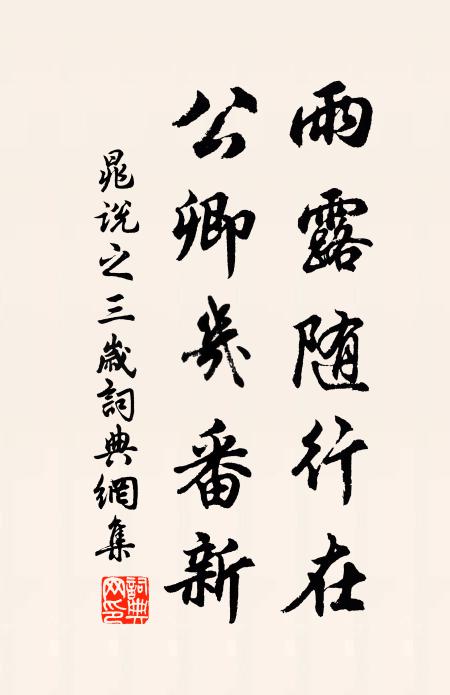 雨露随行在
公卿幾番新
晁说之三歲詞典網集
詞典網印